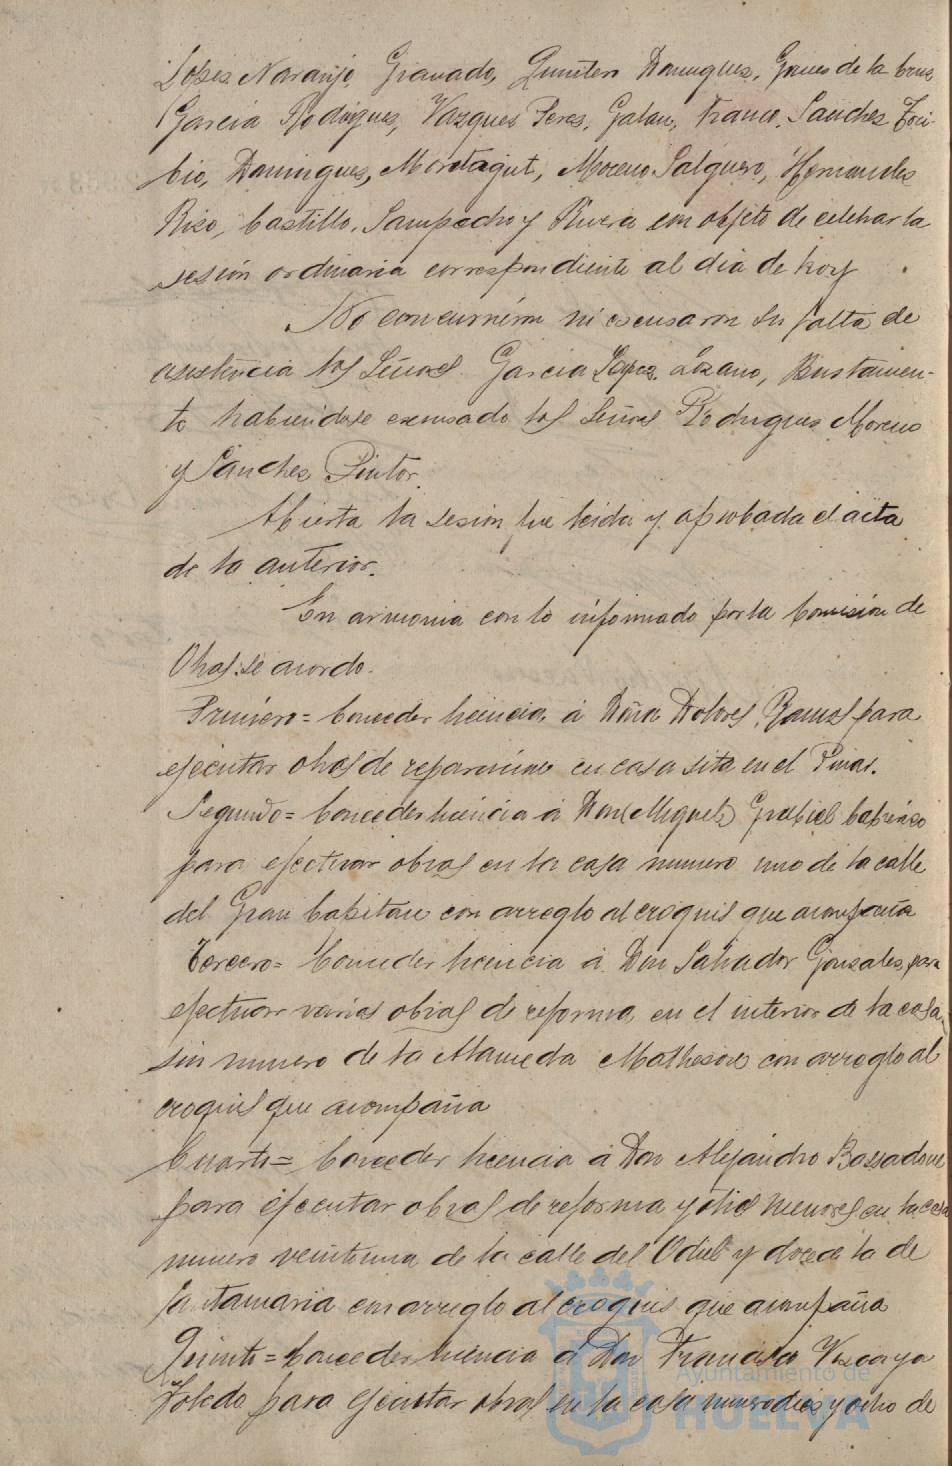 Lopez Naranjo, Granado, Quintero Dominguez, Garcés de la Cruz
Garcia Rodriguez, Vazquez Perez, Galan, Franco, Sanchez Tori-
bio, Dominguez, Montagut, Moreno Salguero, Hernandez
Rizo, Castillo, Sampedro y Rivera con objeto de celebrar la
sesión ordinaria correspondiente al dia de hoy.
No concurrieron ni escusaron su falta de
asistencia los Señores Garcia Lopez, Lozano, Bustamen-
te habiendose escusado los Señores Rodriguez Moreno
y Sanchez Pintor.
Abierta la sesión fue leida y aprobada el acta
de la anterior.
En armonia con lo informado por la Comisión de
Obras se acordo.
Primero = Conceder licencia á Doña Dolores Ramos para
ejecutar obras de reparación en casa sita en el Pinar.
Segundo = Conceder licencia á Don Miguel Grabiel
para efectuar obras en la casa numero uno de la calle
del Gran Capitan con arreglo al croquis que acompaña
Tercero = Conceder licencia á Don Salvador Gonzalez para
efectuar varias obras de reforma en el interior de la casa
sin numero de la Alameda Matheson con arreglo al
croquis que acompaña
Cuarto = Conceder licencia á Don Alejandro Bossadone
para ejecutar obras de reforma y otras menores en la casa
numero veintiuna de la calle del Odiel y doce de la de
Santamaria con arreglo al croquis que acompaña
Quinto = Conceder licencia á Don Francisco Vizcaya
Toledo para ejecutar obras en la casa numero diez y ocho de
Ayuntamiento de
HUELVA